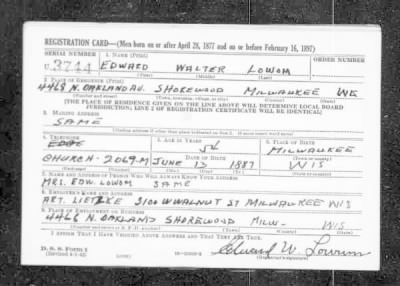 REGISTRATION CARD—(Men born on or after April 28, 1877 and on or before February 16, 1897)
SERIAL NUMBER 1. NAME (Print) ORDER NUMBER
U 3744 EDWARD WALTER LOWOM
(First) (Middle) (Last)
2. PLACE OF RESIDENCE (Print)
4468 N. OAKLAND AV. SHOREWOOD MILWAUKEE WIS
(Number and street) (Town, township, village, or city) (County) (State)
[THE PLACE OF RESIDENCE GIVEN ON THE LINE ABOVE WILL DETERMINE LOCAL BOARD
JURISDICTION; LINE 2 OF REGISTRATION CERTIFICATE WILL BE IDENTICAL]
3. MAILING ADDRESS
SAME
[Mailing address if other than place indicated on line 2. If same insert word same]
4. TELEPHONE 5. AGE IN YEARS 6. PLACE OF BIRTH
EDGE 54 MILWAUKEE
DATE OF BIRTH (Town or county)
CHURCH-2069-M JUNE 13 1887 WIS
(Exchange) (Number) (Mo.) (Day) (Yr.) (State or country)
7. NAME AND ADDRESS OF PERSON WHO WILL ALWAYS KNOW YOUR ADDRESS
MRS. EDW. LOWOM SAME
8. EMPLOYER'S NAME AND ADDRESS
ART. LIETZKE 3100 W WALNUT ST MILWAUKEE WIS
9. PLACE OF EMPLOYMENT OR BUSINESS
4468 N. OAKLAND SHOREWOOD MILW- WIS
(Number and street or R. F. D. number) (Town) (County) (State)
I AFFIRM THAT I HAVE VERIFIED ABOVE ANSWERS AND THAT THEY ARE TRUE.
D. S. S. Form 1
(Revised 4-1-42) (over) Edward W. Lowom
(Registrant's signature)